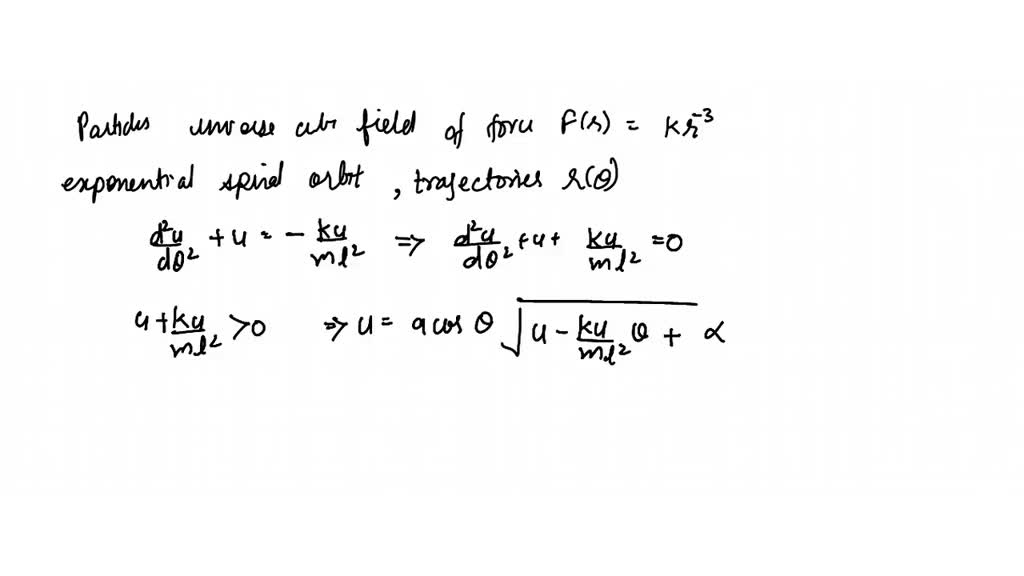 Particles inverse cube field of force F(r) = kr^-3
exponential spiral orbit , trajectories r(θ)
d²u/dθ² + u = - ku/ml² => d²u/dθ² + u + ku/ml² = 0
u + ku/ml² > 0 => u = a cos θ √(u - ku/ml² θ + α)